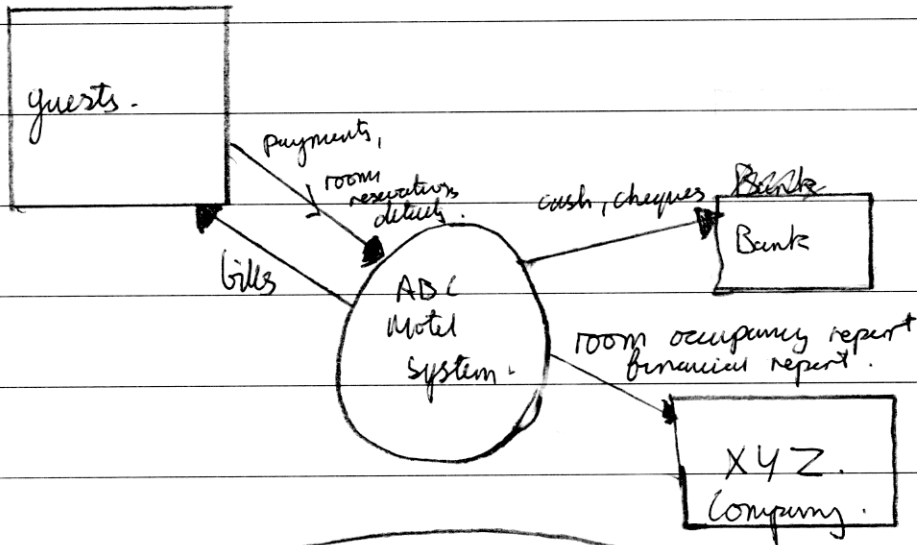 guests.
payments,
room
reservations
details.
bills
ABC
Motel
System.
cash, cheques
Bank
Bank
room occupancy report
financial report.
XYZ.
Company.